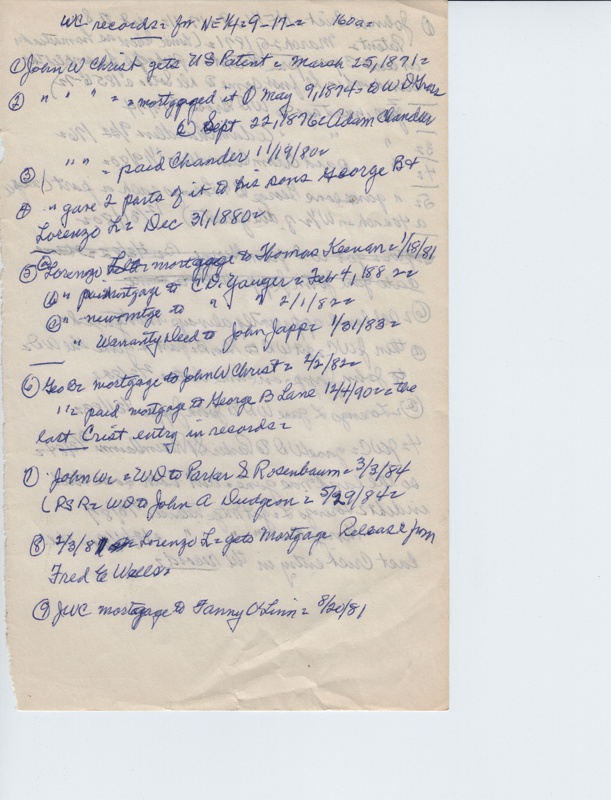 WC records = for NE 1/4 = 9-17 = 160a =
① John W Christ gets US Patent = March 25, 1871 =
② " " " = = mortgaged it ① May 9, 1874 = to W D
② Sept 22, 1876 = Adam Chandler
③ " " = paid Chander 11/19/80 =
④ " gave 2 parts of it to his sons George B +
Lorenzo L = Dec 31, 1880 =
⑤ ① Lorenzo L = mortgage to Thomas Keenan = 1/18/81
① " paid mortgage to C.D. Yauger = Feb 4, 1882 =
② " new mtge to " " 2/1/82 =
" Warranty Deed to John Japp = 1/31/83 =
⑥ Geo B = mortgage to John W Christ = 2/2/82 =
" = paid mortgage to George B Lane 12/4/90 = = the
last Crist entry in records =
7) John W = = WD to Parker S Rosenbaum = 3/3/84
(PSR = WD to John A Dudgeon = 5/29/84 =
⑧ 2/3/81 = Lorenzo L = gets Mortgage Release from
Fred E Wells =
⑨ JWC mortgage to Fanny O'Linn = 8/20/81